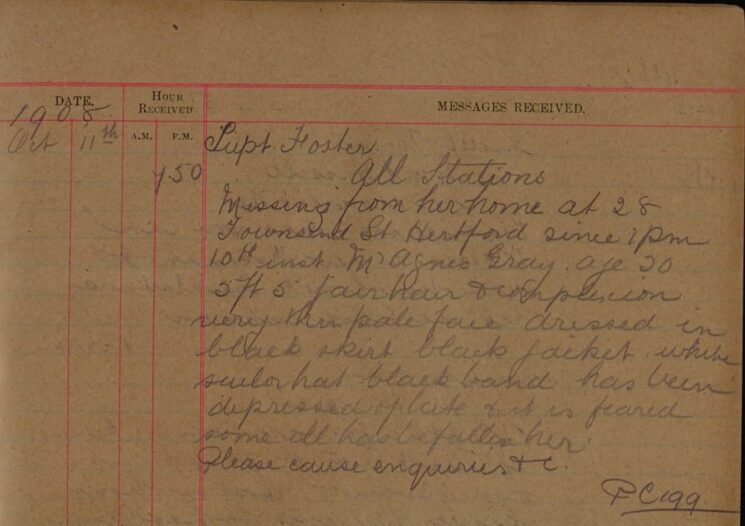 DATE. HOUR RECEIVED MESSAGES RECEIVED.
1908
Oct 11th A.M. P.M. Supt Foster
7 50 All Stations
Missing from her home at 28
Townsend St Hertford since 1 pm
10th inst Mrs Agnes Gray age 30
5 ft 5 fair hair & complexion
very thin pale face dressed in
black skirt black jacket white
sailor hat black band has been
depressed of late & it is feared
some ill has befallen her.
Please cause enquiries &c.
PC 199